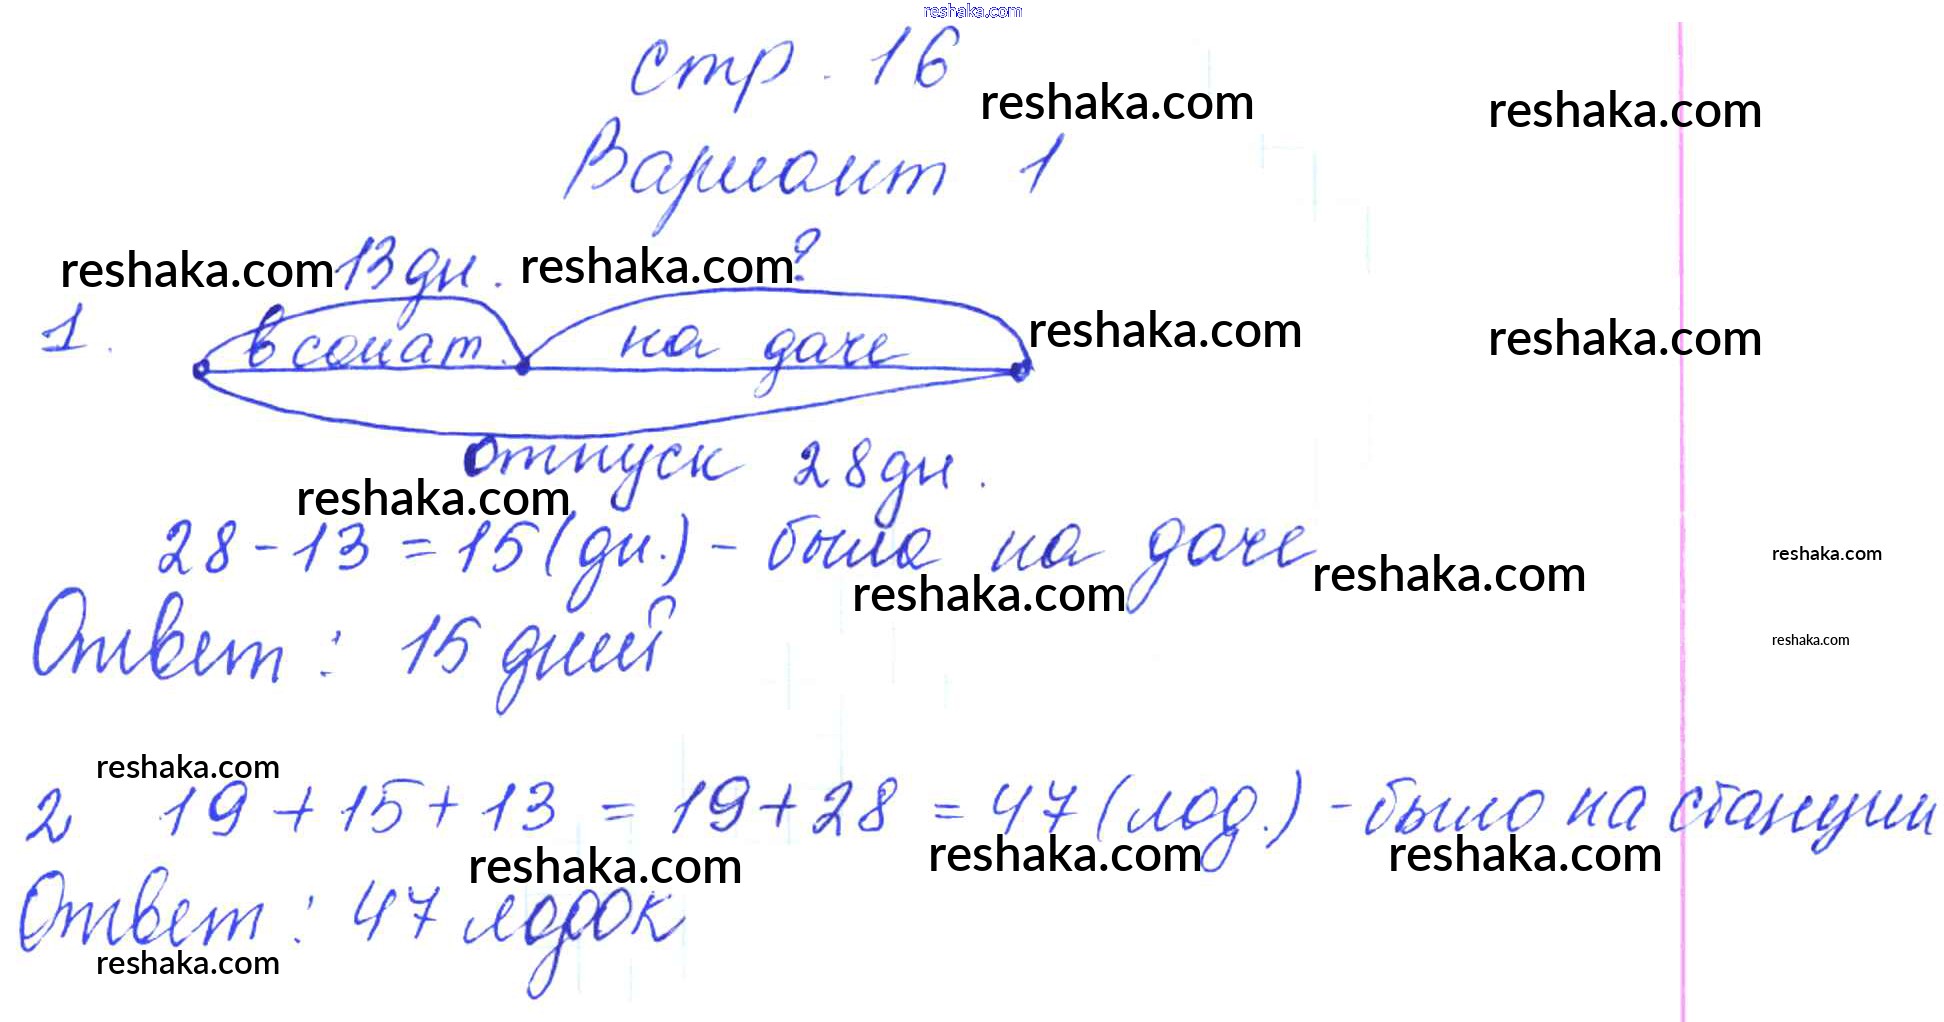 reshaka.com
стр. 16
reshaka.com reshaka.com
Вариант 1
reshaka.com 13 дн. reshaka.com ?
1. в сонат. на даче reshaka.com reshaka.com
отпуск 28 дн.
reshaka.com
28 - 13 = 15 (дн.) - было на даче
reshaka.com reshaka.com reshaka.com
Ответ: 15 дней
reshaka.com
reshaka.com
2 19 + 15 + 13 = 19 + 28 = 47 (лод.) - было на станции
reshaka.com reshaka.com reshaka.com
Ответ: 47 лодок
reshaka.com